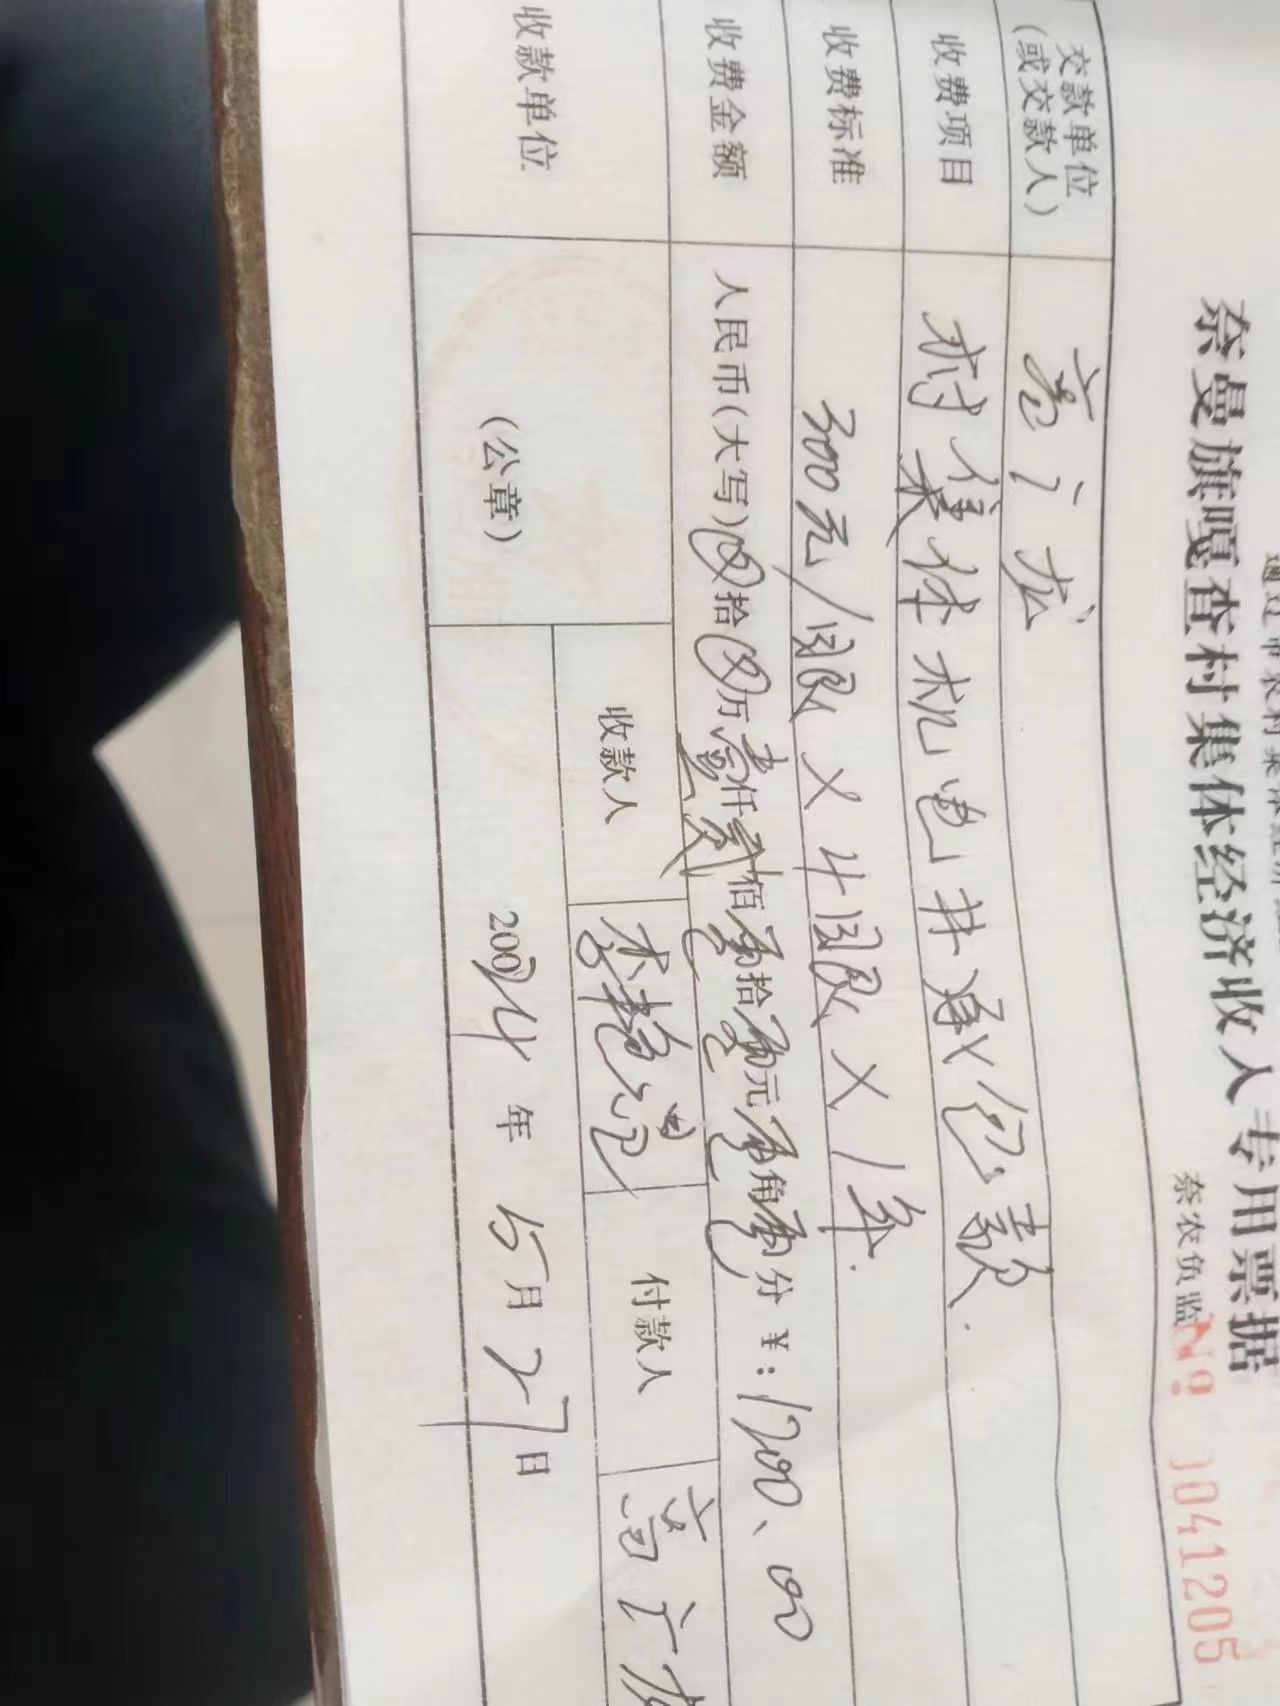 奈曼旗嘎查村集体经济收入专用票据
奈农负监 №0041205
交款单位(或交款人) 高广龙
收费项目 村集体机电井承包款.
收费标准 300元/眼×4眼×1年.
收费金额 人民币(大写)⊗拾⊗万壹仟贰佰零拾零元零角零分 ¥:1200、00
收款单位 (公章) 收款人 付款人 高广龙
2004年5月27日